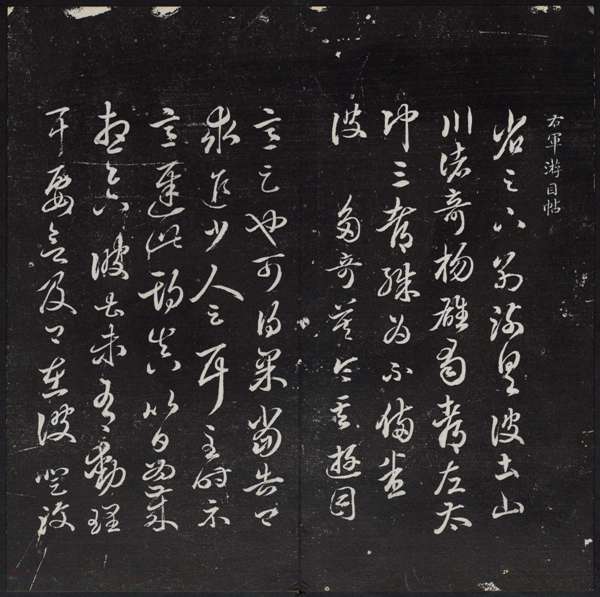 右軍游目帖
省足下別疏具彼土山
川諸奇楊雄蜀都左太
冲三都殊為不備悉
彼多奇益令其遊目
意足也可得果當告卿
求迎少人足耳至時示
意遲此期真以日為歲
想足下鎮彼土未有動理
耳要欲及卿在彼登汶